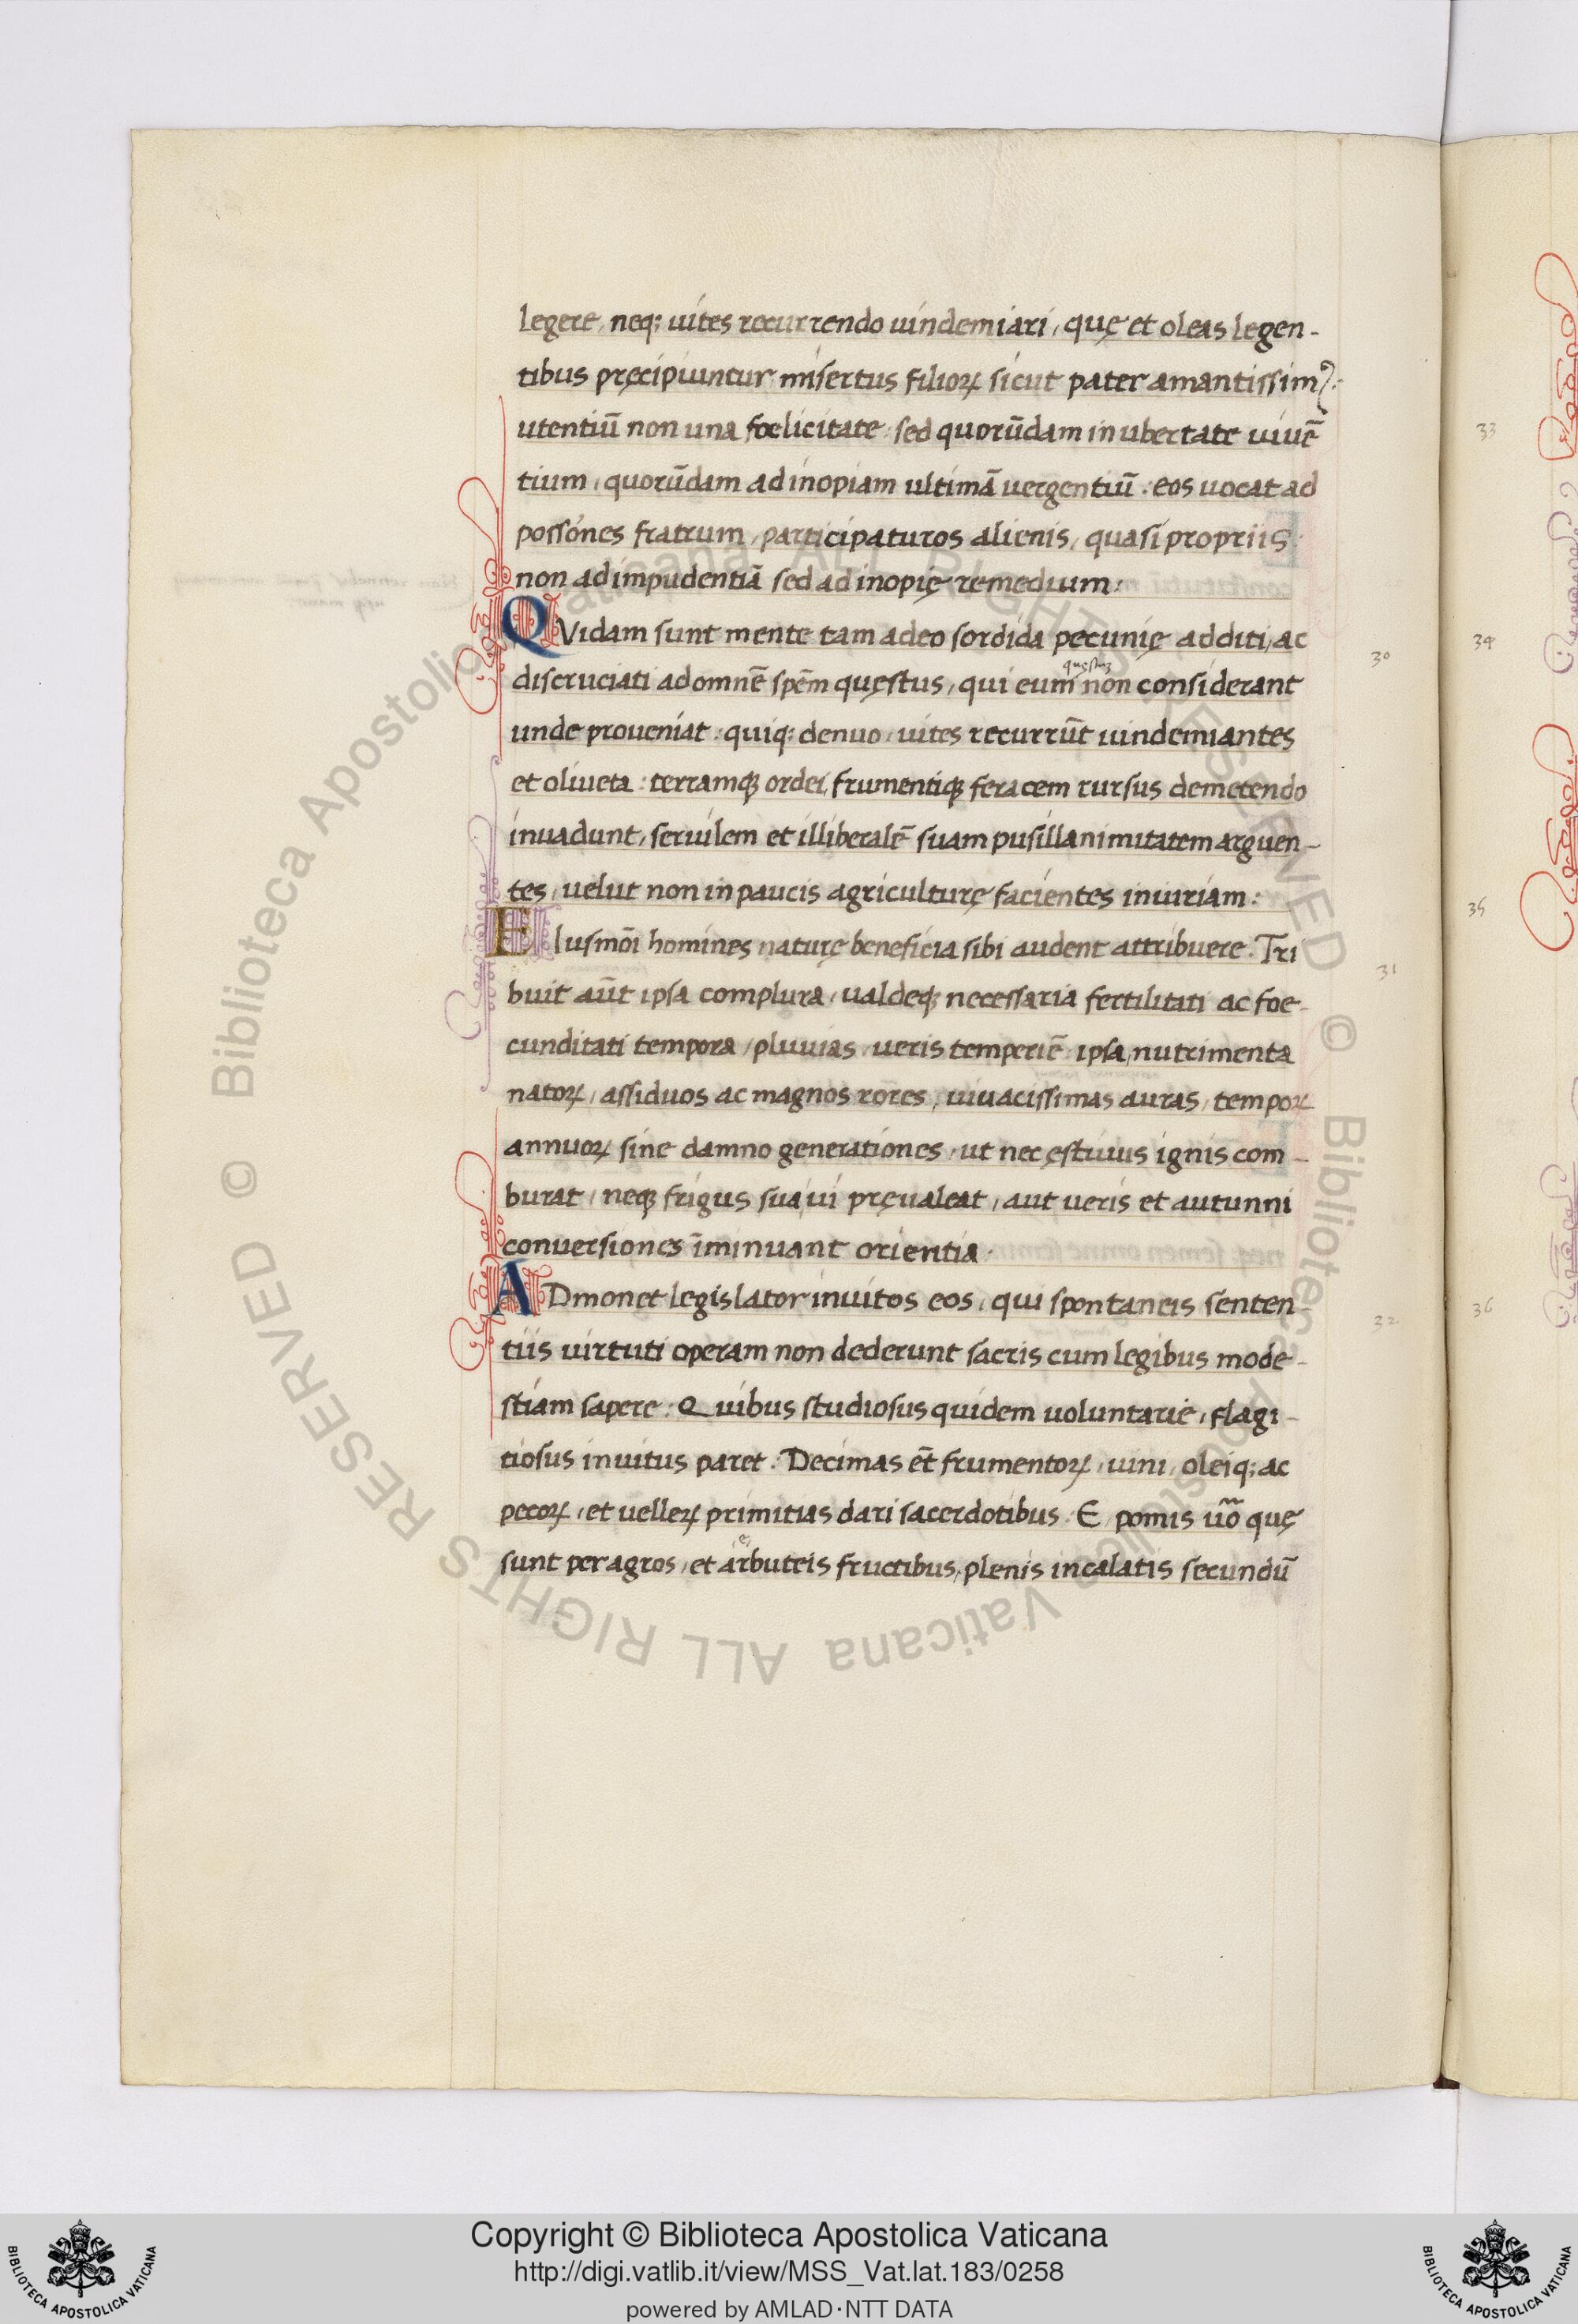 legere, neq; uites recurrendo uindemiari, quę et oleas legen-
tibus pręcipiuntur misertus filioꝝ sicut pater amantissimꝰ:
utentiū non una foelicitate: sed quorūdam in ubertate uiuē
tium, quorūdam ad inopiam ultimā uergentiū: eos uocat ad
possōnes fratrum, participaturos alienis, quasi propriis:
non ad impudentiā sed ad inopię remedium:
QVidam sunt mente tam adeo sordida pecunię additi, ac
discruciati ad omnē spēm quęstus, qui eum non considerant
unde proueniat: quiq; denuo uites recurrūt uindemiantes
et oliueta: terramqꝫ ordei, frumentiqꝫ feracem rursus demetendo
inuadunt, seruilem et illiberalē suam pusillanimitatem arguen-
tes, uelut non in paucis agriculturę facientes iniuriam:
EIusmōi homines naturę beneficia sibi audent attribuere. Tri
buit aūt ipsa complura, ualdeqꝫ necessaria fertilitati ac foe-
cunditati tempora, pluuias, ueris temperiē ipsa, nutrimenta
natoꝝ, assiduos ac magnos rores, uiuacissimas auras, tempoꝝ
annuoꝝ sine damno generationes, ut nec ęstiuus ignis com-
burat, neqꝫ frigus sua ui pręualeat, aut ueris et autunni
conuersiones īminuant orientia.
ADmonet legislator inuitos eos, qui spontaneis senten-
tiis uirtuti operam non dederunt sacris cum legibus mode-
stiam sapere: Quibus studiosus quidem uoluntarie, flagi-
tiosus inuitus paret. Decimas ēt frumentoꝝ, uini, oleiq; ac
pecoꝝ, et uelleꝝ primitias dari sacerdotibus. E pomis uō quę
sunt per agros, et arbuteis fructibus, plenis in calatis secundū
30
31
32
33
34
35
36
© Biblioteca Apostolica Vaticana ALL RIGHTS RESERVED
© Biblioteca Apostolica Vaticana ALL RIGHTS RESERVED
Copyright © Biblioteca Apostolica Vaticana
http://digi.vatlib.it/view/MSS_Vat.lat.183/0258
powered by AMLAD·NTT DATA
BIBLIOTECA APOSTOLICA VATICANA
BIBLIOTECA APOSTOLICA VATICANA